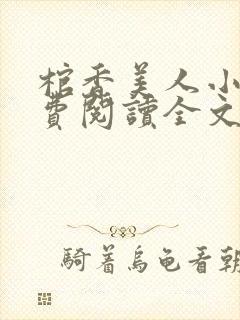 棺香美人小
費閱讀全文
騎着烏龜看朝